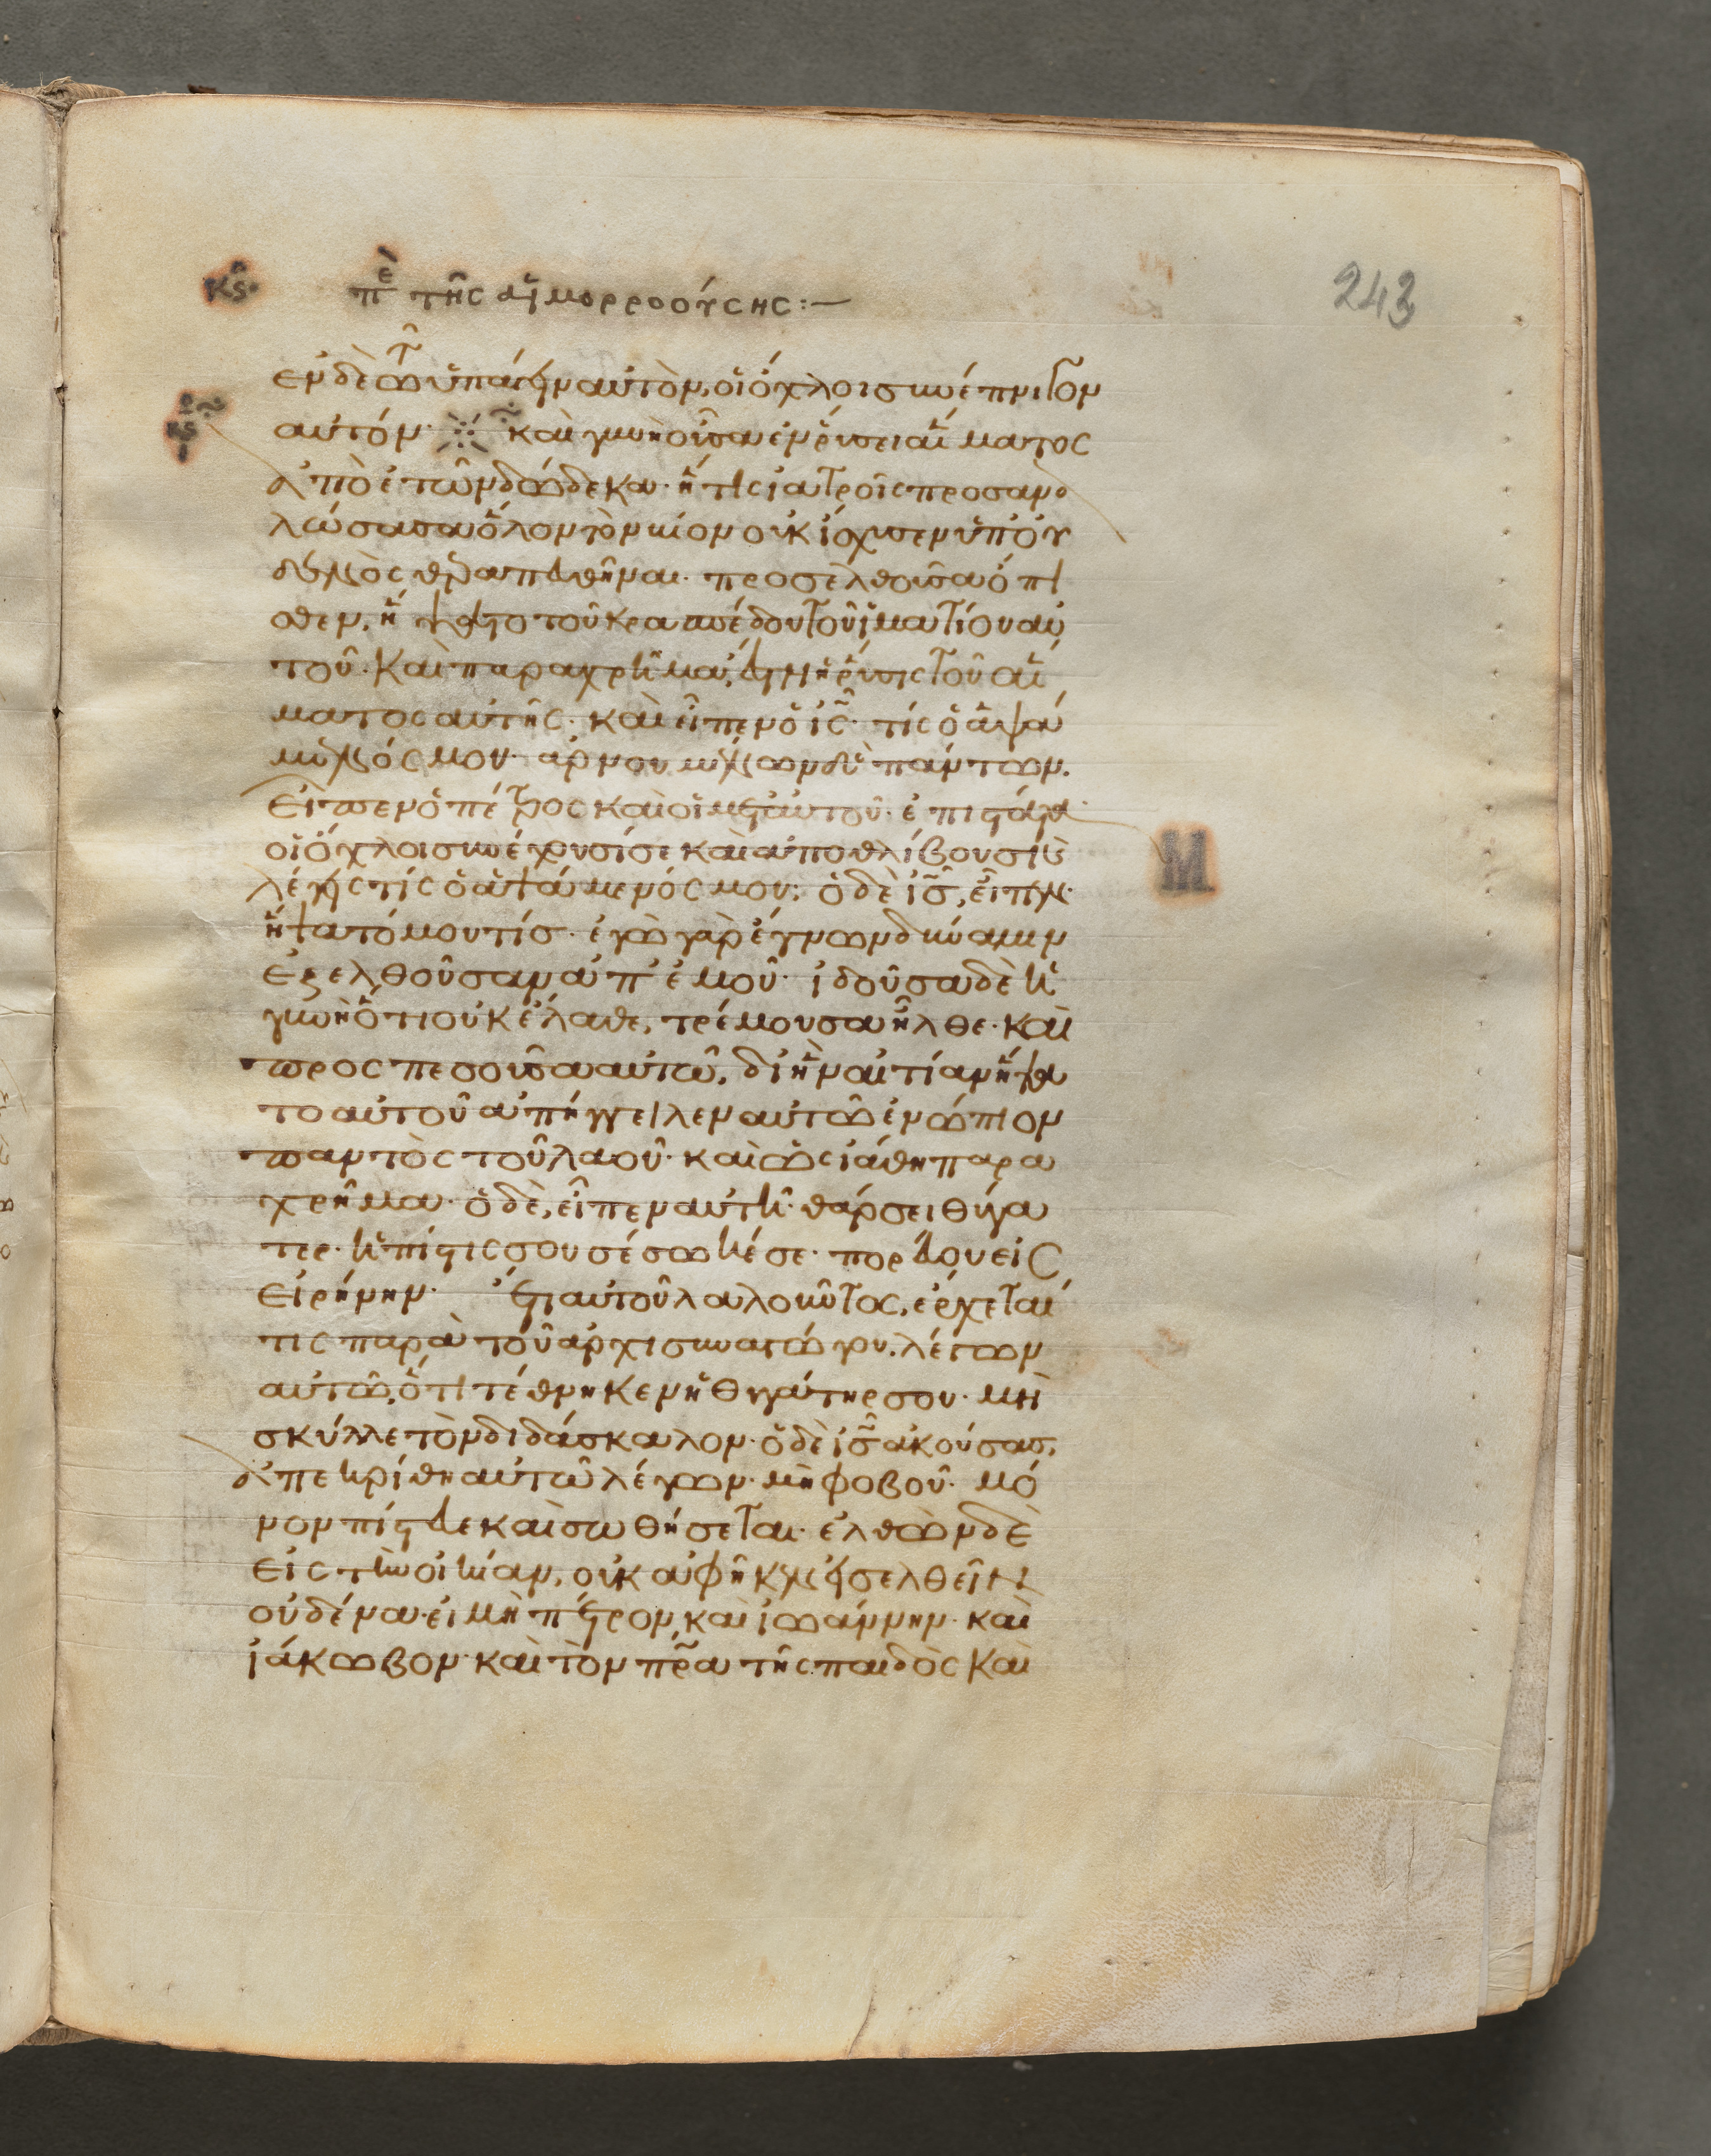 κς· πὲ τῆς αἱμορροούσης:—
243
ἐν δὲ τῶ ὑπάγειν αὐτὸν, οἱ ὄχλοι συνέπνιγον
αὐτόν· καὶ γυνὴ οὖσα ἐν ῥύσει αἵματος
ἀπὸ ἐτῶν δώδεκα· ἥτις ἰατροῖς προσανα
λώσασα ὅλον τὸν βίον οὐκ ἴσχυσεν ὑπ' οὐ
δενὸς θεραπευθῆναι· προσελθοῦσα ὄπι
σθεν, ἥψατο τοῦ κρασπέδου τοῦ ἱματίου αὐ
τοῦ· καὶ παραχρῆμα, ἔστη ἡ ῥύσις τοῦ αἵ
ματος αὐτῆς· καὶ εἶπεν ὁ ις· τίς ὁ ἁψά
μενός μου· ἀρνουμένων δὲ πάντων.
εἶπεν ὁ πέτρος καὶ οἱ μετ' αὐτοῦ· ἐπιστάτα
οἱ ὄχλοι συνέχουσί σε καὶ ἀποθλίβουσι καὶ
λέγεις τίς ὁ ἁψάμενός μου; ὁ δὲ ις, εἶπεν·
Μ
ἥψατό μου τίς· ἐγὼ γὰρ ἔγνων δύναμιν
ἐξελθοῦσαν ἀπ' ἐμοῦ· ἰδοῦσα δὲ ἡ
γυνὴ ὅτι οὐκ ἔλαθε, τρέμουσα ἦλθε· καὶ
προσπεσοῦσα αὐτῶ, δι' ἣν αἰτίαν ἥψα
το αὐτοῦ ἀπήγγειλεν αὐτῶ ἐνώπιον
παντὸς τοῦ λαοῦ· καὶ ὡς ἰάθη παρα
χρῆμα· ὁ δὲ, εἶπεν αὐτῆ· θάρσει θύγα
τερ· ἡ πίστις σου σέσωκέ σε· πορεύου εἰς
εἰρήνην· ἔτι αὐτοῦ λαλοῦντος, ἔρχεταί
τις παρὰ τοῦ ἀρχισυναγώγου. λέγων
αὐτῶ, ὅτι τέθνηκεν ἡ θυγάτηρ σου· μὴ
σκύλλε τὸν διδάσκαλον· ὁ δὲ ις ἀκούσας,
ἀπεκρίθη αὐτῶ λέγων· μὴ φοβοῦ· μό
νον πίστευε καὶ σωθήσεται· ἐλθὼν δὲ
εἰς τὴν οἰκίαν, οὐκ ἀφῆκεν εἰσελθεῖν
οὐδένα· εἰ μὴ πέτρον, καὶ ἰωάννην· καὶ
ἰάκωβον· καὶ τὸν πρα τῆς παιδὸς καὶ